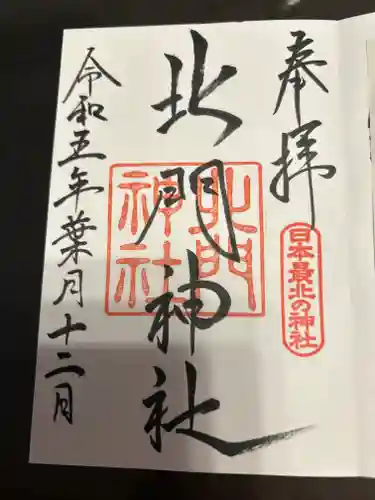 奉拝
日本最北の神社
北門神社
北門
神社
令和五年葉月十二月